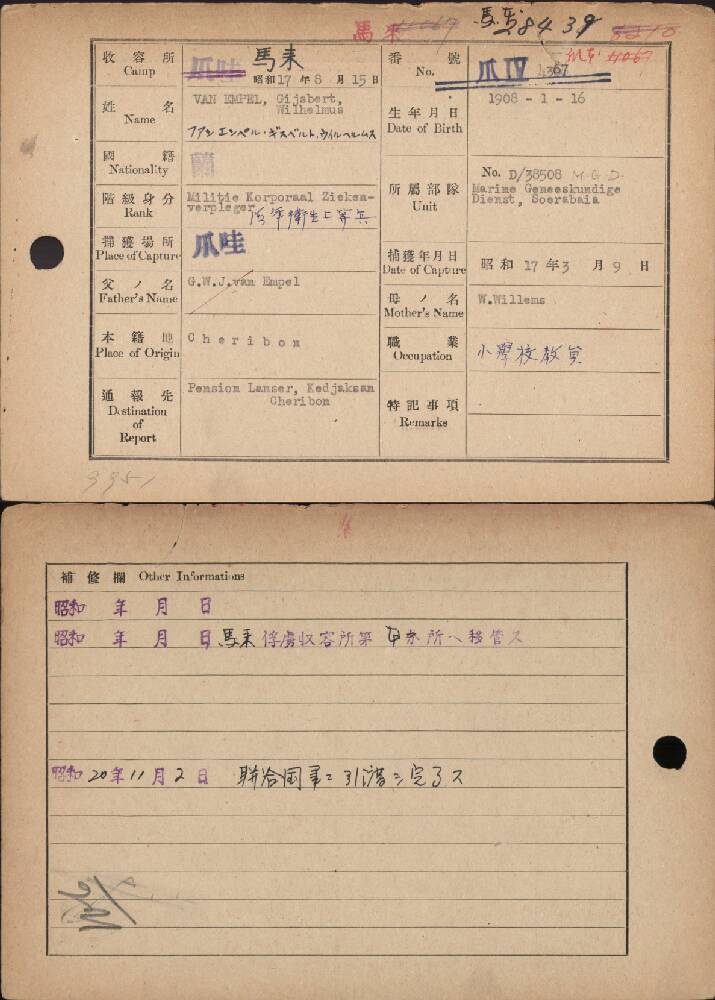 馬来
馬来 28439
収容所
Camp
爪哇 馬来
昭和17年8月15日
番號
No.
爪 IV 4367
姓名
Name
VAN EMPEL, Gijsbert,
Wilhelmus
ファン エンペル・ギスベルト,ウイルヘルムス
生年月日
Date of Birth
1908 - 1 - 16
國籍
Nationality
蘭
階級身分
Rank
Militie Korporaal Zieken-
verpleger
所屬部隊
Unit
No. D/38508 M.G.D.
Marine Geneeskundige
Dienst, Soerabaia
捕獲場所
Place of Capture
爪哇
捕獲年月日
Date of Capture
昭和17年3月9日
父ノ名
Father's Name
G.W.J.van Empel
母ノ名
Mother's Name
W.Willems
本籍地
Place of Origin
Cheribon
職業
Occupation
小學校教員
通報先
Destination
of
Report
Pension Lanser, Kedjaksan
Cheribon
特記事項
Remarks
補修欄 Other Informations
昭和 年 月 日
昭和 年 月 日 馬来俘虜収容所第 分所ヘ移管ス
昭和20年11月2日 聯合国軍ニ引渡シ完了ス